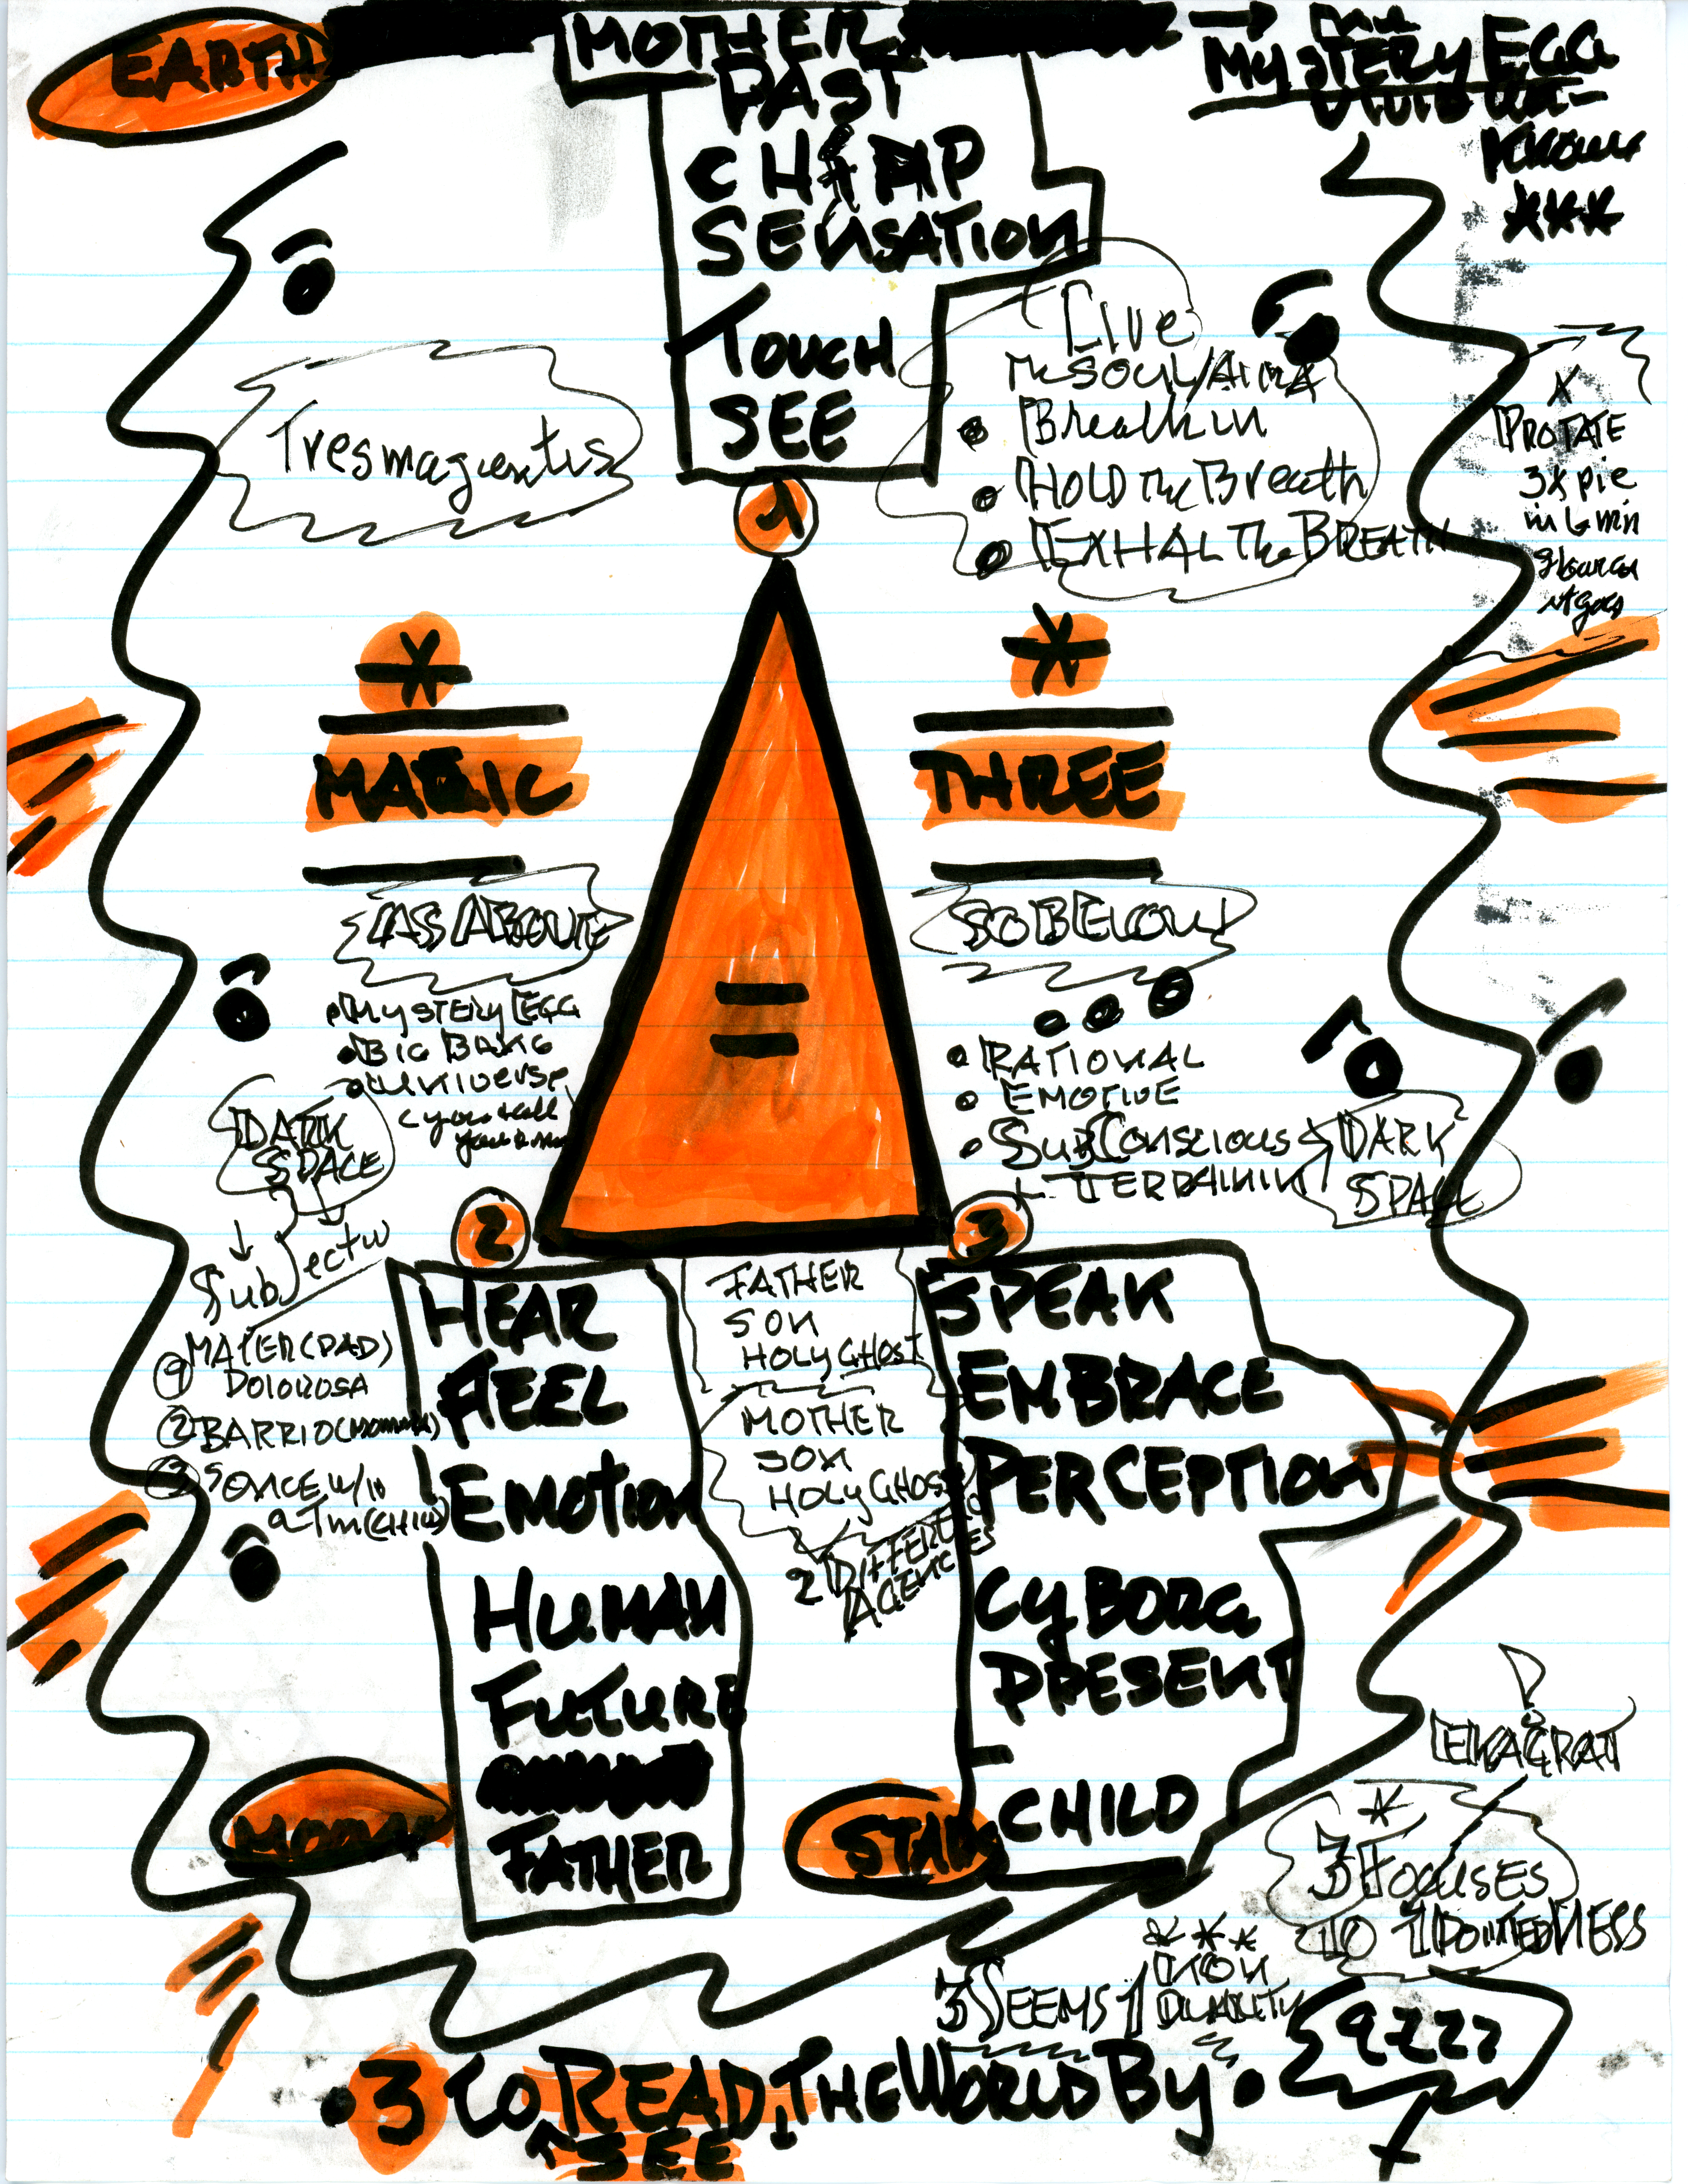 EARTH
MOTHER
PAST
CHIMP
SENSATION
TOUCH
SEE
1
→ the
MYSTERY EGG
KNOWN
***
Tresmagentis
Live
the SOUL/AIRA
• Breath in
• HOLD the Breath
• EXHAL The BREATH
X
ROTATE
3X pie
in 6 min
it goes
*
MAGIC
*
THREE
AS ABOVE
• MYSTERY EGG
• BIG BANG
• universe
DARK
SPACE
SO BELOW
• RATIONAL
• EMOTIVE
• SubConscious
DARK
SPACE
=
2
3
Subjectiv
MATER (DAD)
DOLOROSA
② BARRIO
③ SONCE W/10
HEAR
FEEL
EMOTION
HUMAN
FUTURE
FATHER
FATHER
SON
HOLY GHOST
MOTHER
SON
HOLY GHOST
2 DIFFERENT
AGENCIES
SPEAK
EMBRACE
PERCEPTION
CYBORG
PRESENT
CHILD
MOON
STAR
EKAGRAT
*
3 FOCUSES
TO 1 POINTEDNESS
***
NON
DUALITY
3 SEEMS 1
• 3 to READ THE WORLD BY •
SEE